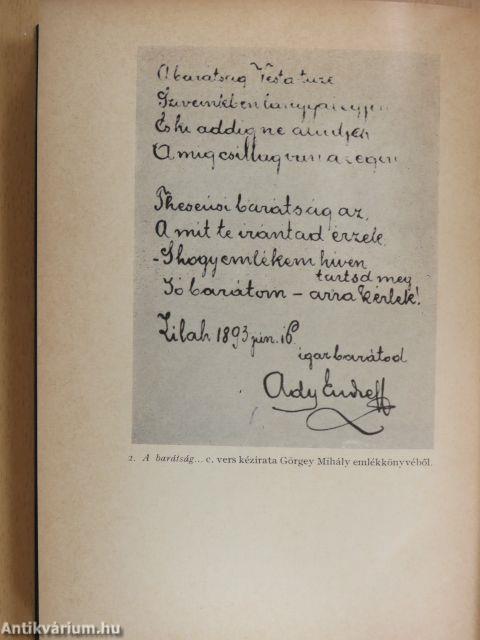 A barátság Vesta tüze
Sziveinkben
És ki addig ne aludjék
A mig csillag van az égen

Theseusi barátság az,
A mit te irántad érzek
-S hogy emlékem hiven
tartsd meg
Jó barátom – arra kérlek!
Zilah 1893 jun. 16.
igaz barátod
Ady Endre
2. A barátság... c. vers kézirata Görgey Mihály emlékkönyvéből.
Antikvárium.hu